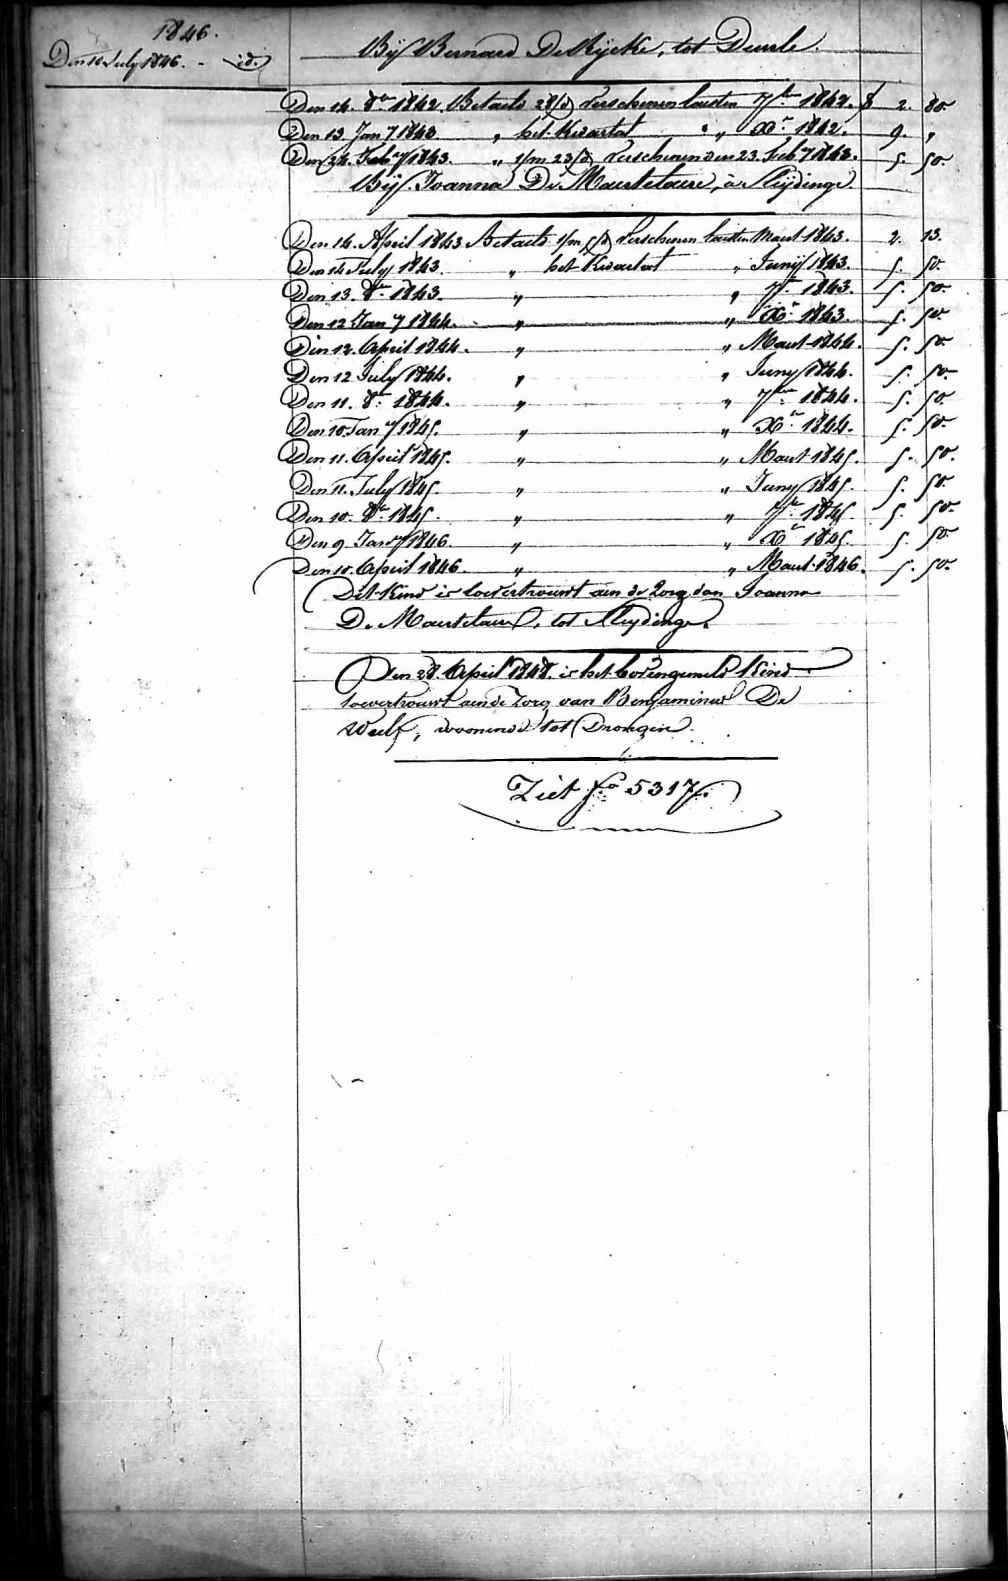 1846.
Den 10 July 1846. - id.
Bij Bernard De Rijcke, tot Deurle.
Den 14. 8re 1842. Betaeld 28/d Verschenen laesten 7re 1842. f 2. 80.
Den 13. Jan 7 1843 „ het Kwartael „ Xr 1842. 9. „
Den 24. Feb 7 1843. „ 1/m 23/d Verschenen den 23. Feb 7 1843. 5. 50.
Bij Joanna De Maertelaere, à Sleijdinge
Den 14. April 1843 Betaeld 1/m 5/d Verschenen laesten Maert 1843. 2. 13.
Den 14 July 1843. „ het Kwartael „ Junij 1843. 5. 50.
Den 13. 8re 1843. „ „ 7re 1843. 5. 50.
Den 12 Jan 7 1844. „ „ Xr 1843. 5. 50.
Den 12. April 1844. „ „ Maert 1844. 5. 50.
Den 12 July 1844. „ „ Juny 1844. 5. 50.
Den 11. 8re 1844. „ „ 7re 1844. 5. 50.
Den 10 Jan 7 1845. „ „ Xr 1844. 5. 50.
Den 11. April 1845. „ „ Maert 1845. 5. 50.
Den 11. July 1845. „ „ Juny 1845. 5. 50.
Den 10. 8re 1845. „ „ 7re 1845. 5. 50.
Den 9 Jan 7 1846. „ „ Xr 1845. 5. 50.
Den 10. April 1846. „ „ Maert 1846. 5. 50.
Dit Kind is toevertrouwt aen de Zorg van Joanna
De Maertelaere, tot Sleydinge.
Den 28. April 1848. is het bovengemeld Kind
toevertrouwt aen de Zorg van Benjaminus De
Wulf, woonende tot Drongen.
Ziet fo. 5317.